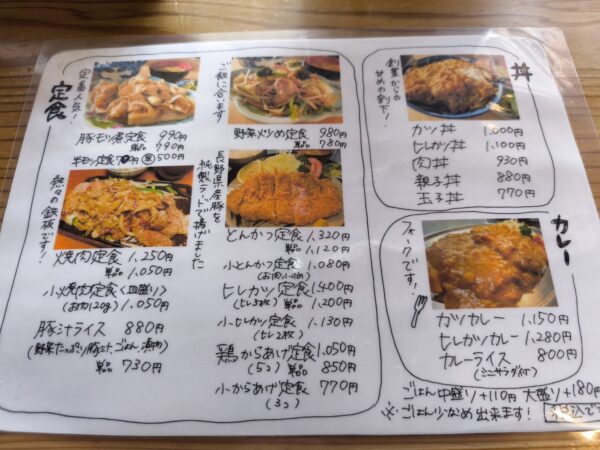 定食
定番人気!
豚モツ煮定食 990円
単品 790円
熱々の鉄板です!
焼肉定食 1,250円
単品 1,050円
小焼肉定食〈皿盛り〉
(お肉120g) 1,050円
豚汁ライス 880円
(野菜たっぷり豚汁、ごはん、漬物)
単品 730円
ご飯に合います!
野菜炒め定食 980円
単品 780円
長野県産豚を
純製ラードで揚げました
とんかつ定食 1,320円
単品 1,120円
小とんかつ定食 1,080円
(お肉小さめ)
ヒレカツ定食 1,400円
(ヒレ3枚) 単品 1,200円
小ヒレカツ定食 1,130円
(ヒレ2枚)
鶏からあげ定食 1,050円
(5コ) 単品 850円
小からあげ定食 770円
(3コ)
丼
創業からの
甘めの割下!
カツ丼 1,000円
ヒレカツ丼 1,100円
肉丼 930円
親子丼 880円
玉子丼 770円
カレー
フォークです。
カツカレー 1,150円
ヒレカツカレー 1,280円
カレーライス 800円
(ミニサラダ付)
ごはん中盛り+110円 大盛り+180円
※ごはん少なめ出来ます!